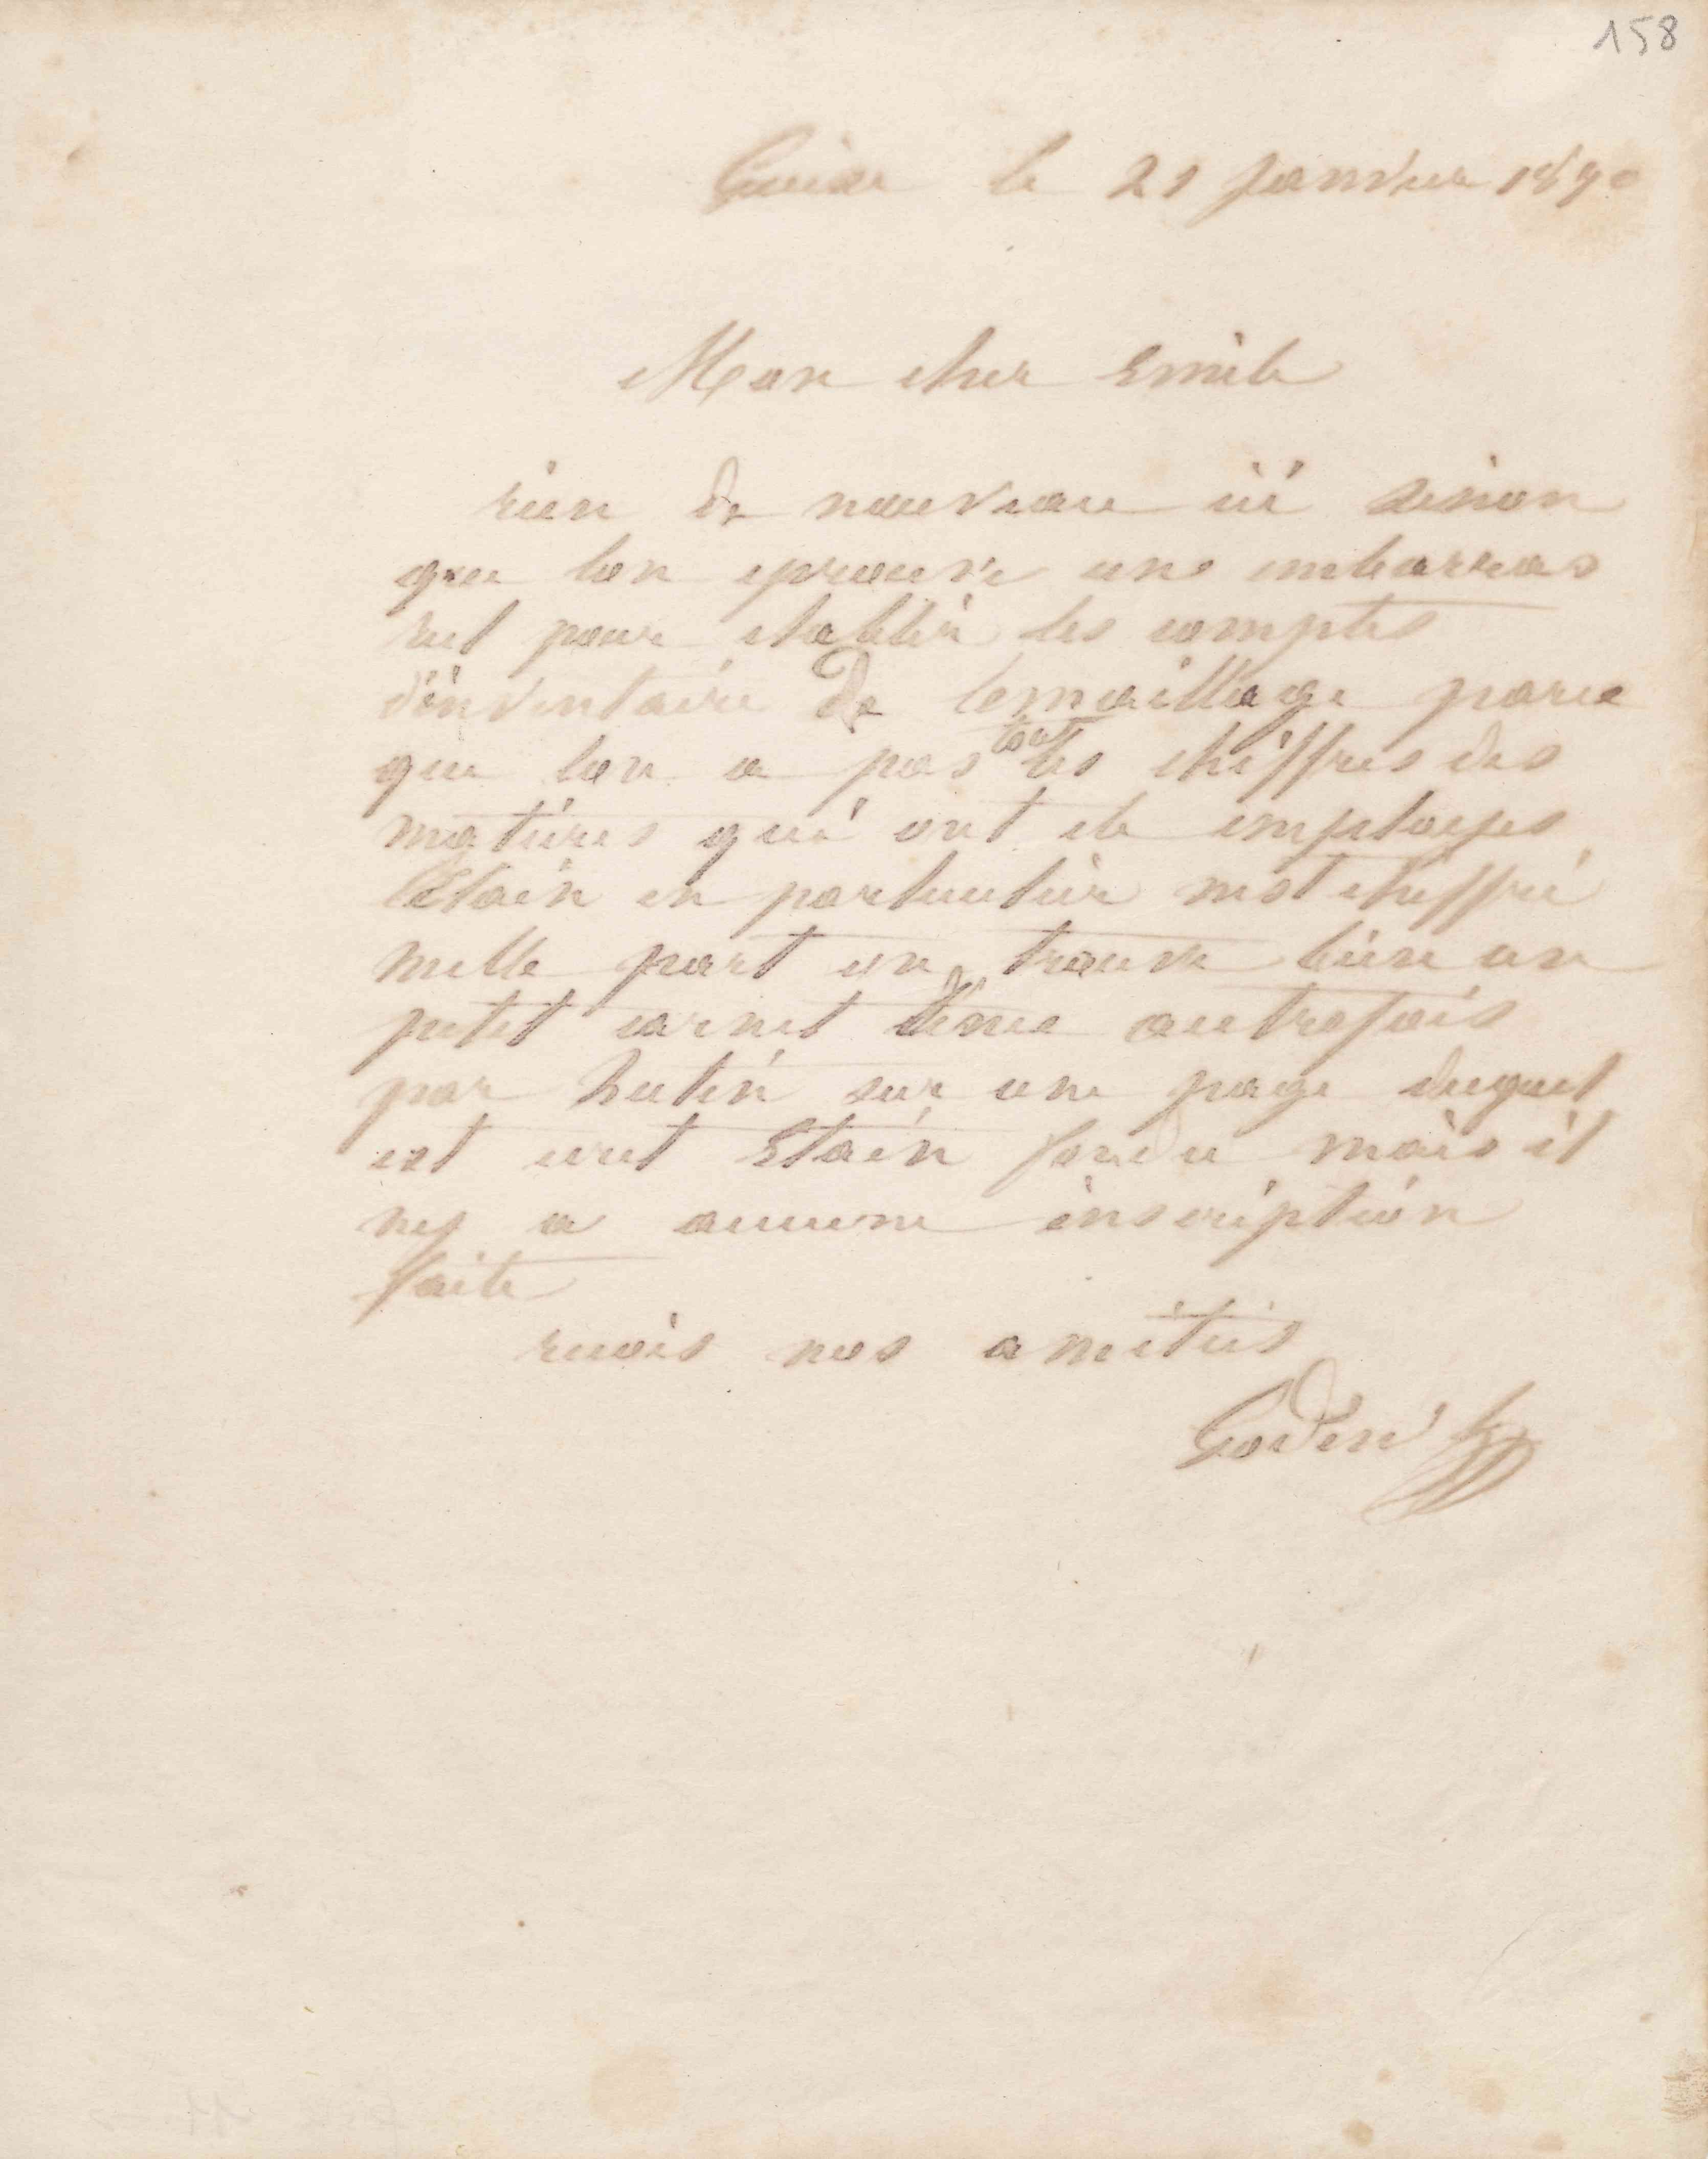 158
Guise le 21 janvier 1870
Mon cher Emile
rien de nouveau ici sinon
que lon eprouve un embarras
réel pour etablir les comptes
d'inventaire de lemaillage parce
que lon a pas tout les chiffres des
matieres qui ont ete employes
l'Etain en particulier nest chiffré
nulle part on trouve bien un
petit carnet tenu autrefois
par hutin sur une page duquel
est ecrit Etain fondu mais il
ny a aucune inscription
faite
recois nos amitiés
Godin